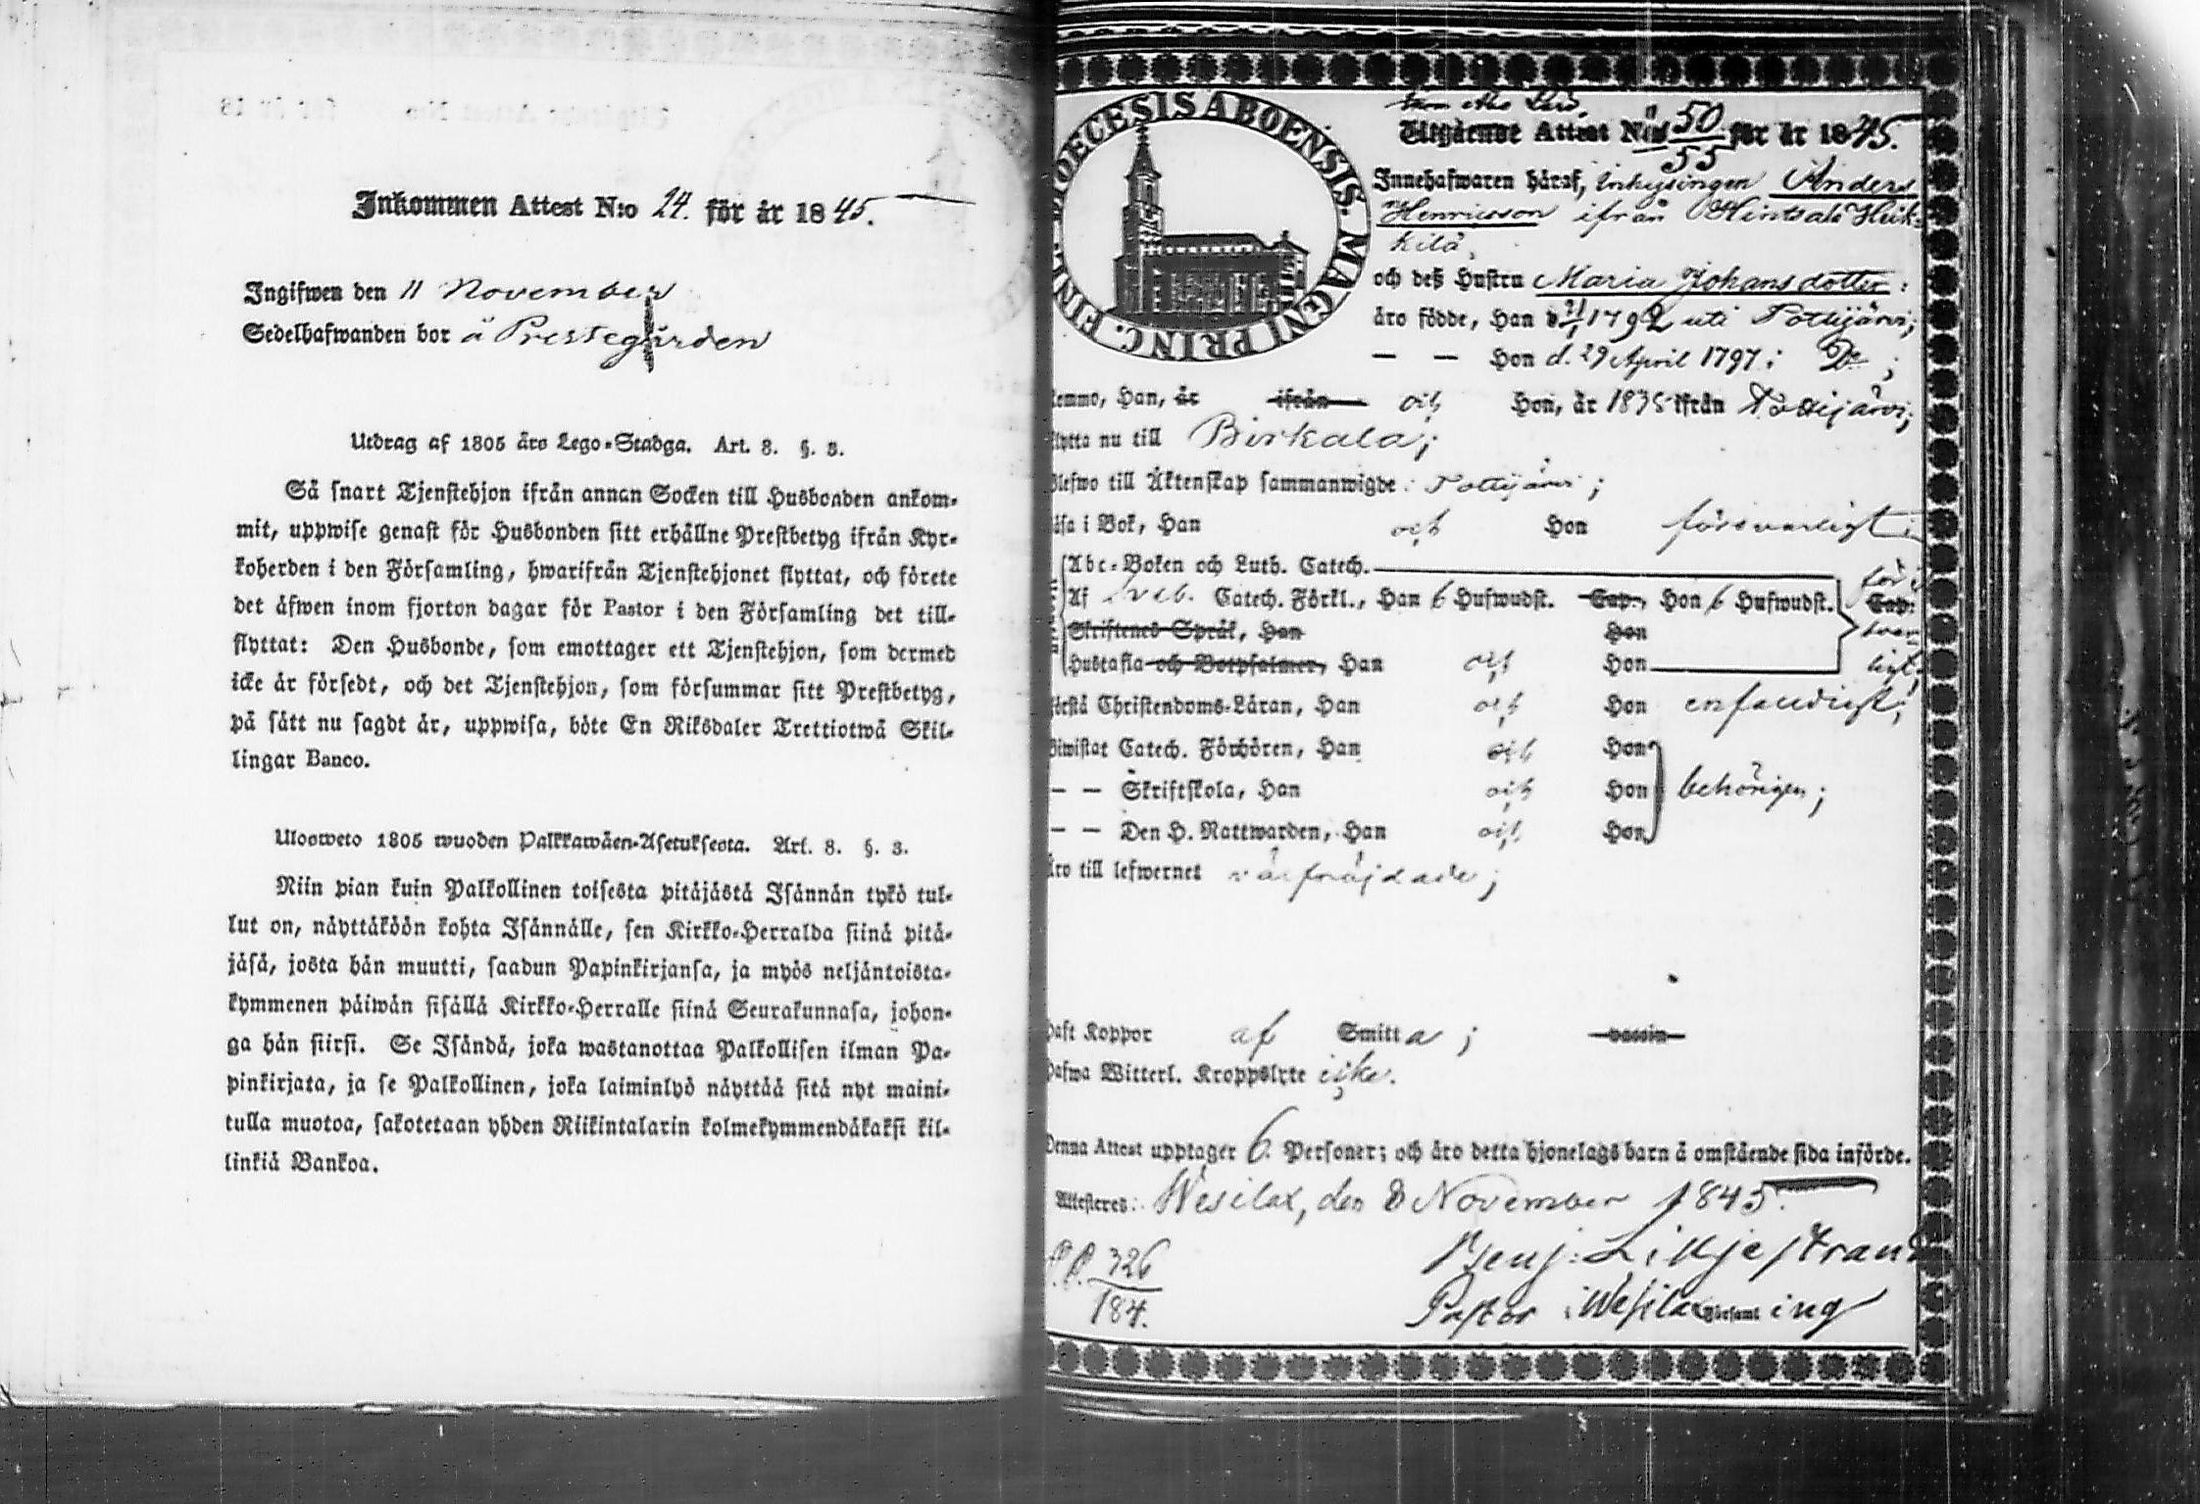 Inkommen Attest N:o 24. för år 1845.
Ingifwen den 11 November
Sedelhafwanden bor å Prestegården
Utdrag af 1805 års Lego-Stadga. Art. 8. §. 3.
Så snart Tjenstehjon ifrån annan Socken till Husbonden ankom-
mit, uppwise genast för Husbonden sitt erhållne Prestbetyg ifrån Kyr-
koherden i den Församling, hwarifrån Tjenstehjonet flyttat, och förete
det äfwen inom fjorton dagar för Pastor i den Församling det till-
flyttat: Den Husbonde, som emottager ett Tjenstehjon, som dermed
icke är försedt, och det Tjenstehjon, som försummar sitt Prestbetyg,
på sätt nu sagdt är, uppwisa, böte En Riksdaler Trettiotwå Skil-
lingar Banco.
Ulosweto 1805 wuoden Palkkawäen-Asetuksesta. Art. 8. §. 3.
Niin pian kuin Palkollinen toisesta pitäjästä Isännän tykö tul-
lut on, näyttäköön kohta Isännälle, sen Kirkko-Herralda siinä pitä-
jäsä, josta hän muutti, saadun Papinkirjansa, ja myös neljäntoista-
kymmenen päiwän sisällä Kirkko-Herralle siinä Seurakunnasa, johon-
ga hän siirsi. Se Isändä, joka wastanottaa Palkollisen ilman Pa-
pinkirjata, ja se Palkollinen, joka laiminlyö näyttää sitä nyt maini-
tulla muotoa, sakotetaan yhden Riikintalarin kolmekymmendäkaksi kil-
linkiä Bankoa.
DIOECESIS ABOENSIS. MAGNI PRINC. FINL.
Utgående Attest N:o 50/55 för år 1845.
Innehafwaren häraf, Inhysingen Anders
Henricsson ifrån Hintsala Heik-
kilä,
och dess Hustru Maria Johansdotter;
äro födde, Han d 1792 uti Tottijärvi;
— — Hon d. 29 April 1797 i Do;
Han, år ifrån och Hon, år 1835 ifrån Tottijärvi;
nu till Birkala;
till Äktenskap sammanwigde i Tottijärvi;
i Bok, Han och Hon försvarligt;
Abc-Boken och Luth. Catech.
Af Sveb. Catech. Förkl., Han 6 Hufwudst. Cap., Hon 6 Hufwudst. Cap.
Skriftenes Språk, Han Hon
Hustafla och Botpsalmer, Han och Hon
Christendoms-Läran, Han och Hon enfaldigt;
Catech. Förhören, Han och Hon
— — Skriftskola, Han och Hon behörigen;
— — Den H. Nattwarden, Han och Hon
Äro till lefwernet välfräjdade;
Haft Koppor af Smitta; vaccin
Hafwa Witterl. Kroppslyte icke.
Denna Attest upptager 6 Personer; och äro detta hjonelags barn å omstående sida införde.
Attesteres: Wesilax, den 8 November 1845.
326
184.
Benj: Liljestrand
Pastor i Wesilax Församling